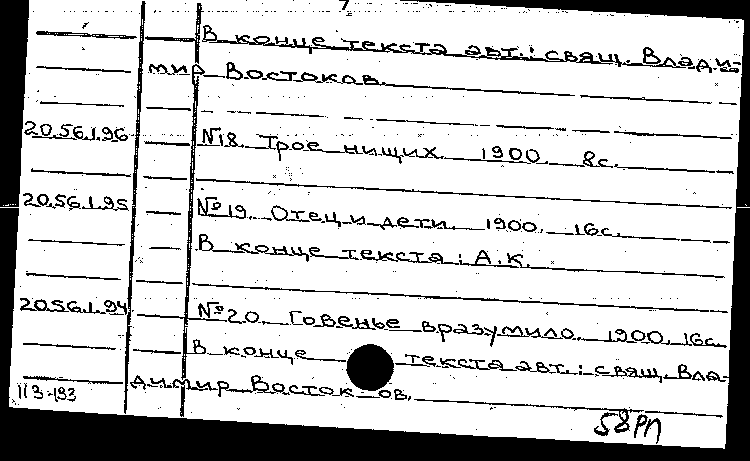 В конце текста авт.: свящ. Влади-
мир Востоков.
20.56.1.96 №18. Трое нищих. 1900. 8с.
20.56.1.95 №19. Отец и дети. 1900. 16с.
В конце текста: А.К.
20.56.1.94 №20. Говенье вразумило. 1900. 16с.
В конце текста авт.: свящ. Вла-
димир Восток-ов.
113-193
58РП